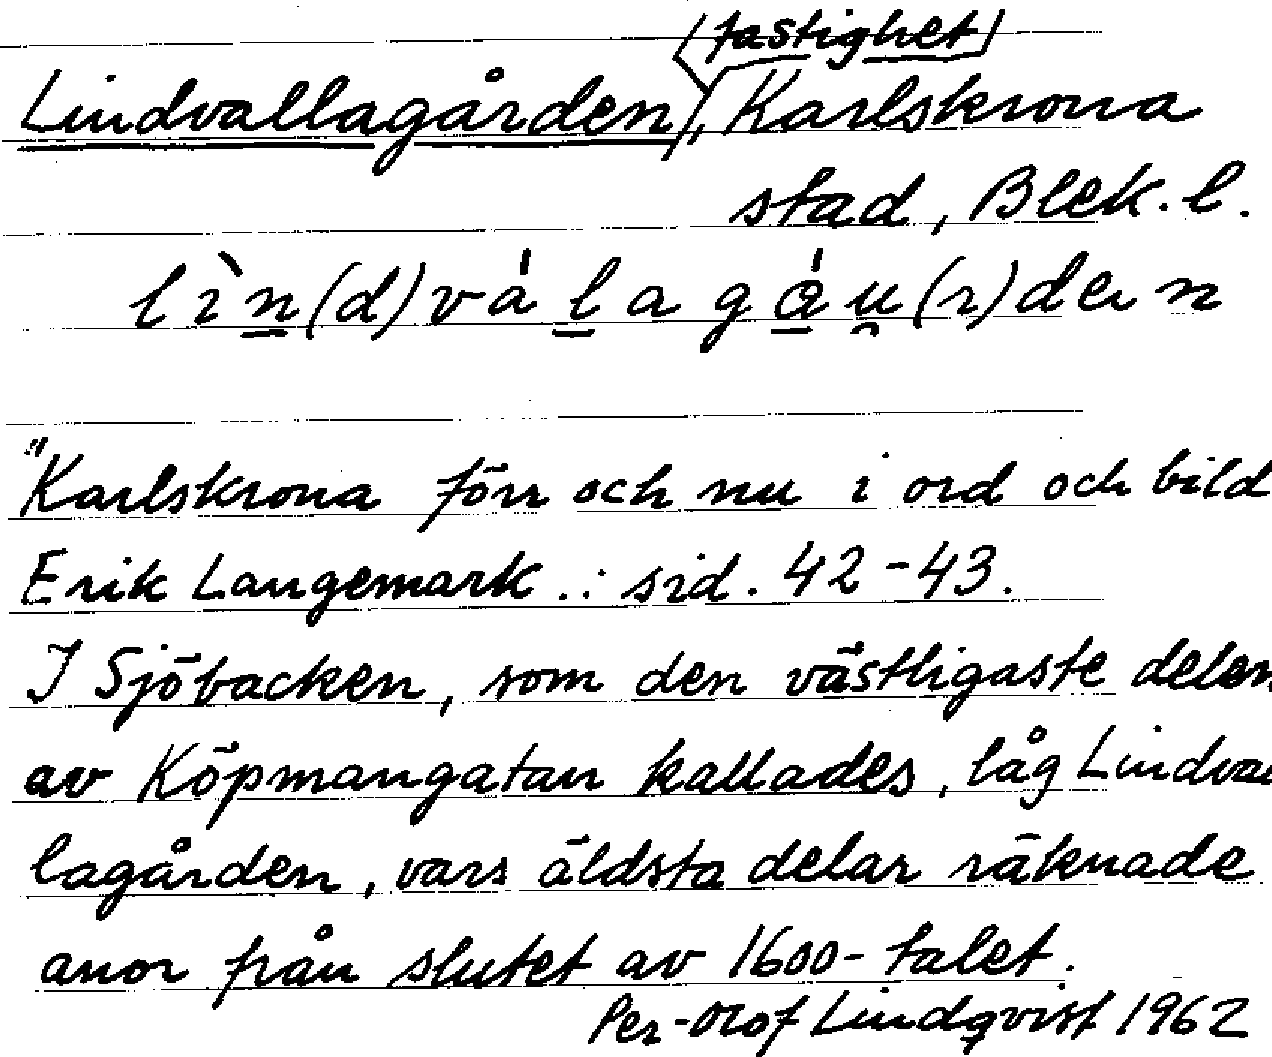 (fastighet)
Lindvallagården, Karlskrona
stad, Blek. l.
lìn(d)válagáu(r)den
"Karlskrona förr och nu i ord och bild
Erik Langemark.: sid. 42-43.
I Sjöbacken, som den västligaste delen
av Köpmangatan kallades, låg Lindval
lagården, vars äldsta delar räknade
anor från slutet av 1600-talet.
Per-Olof Lindqvist 1962